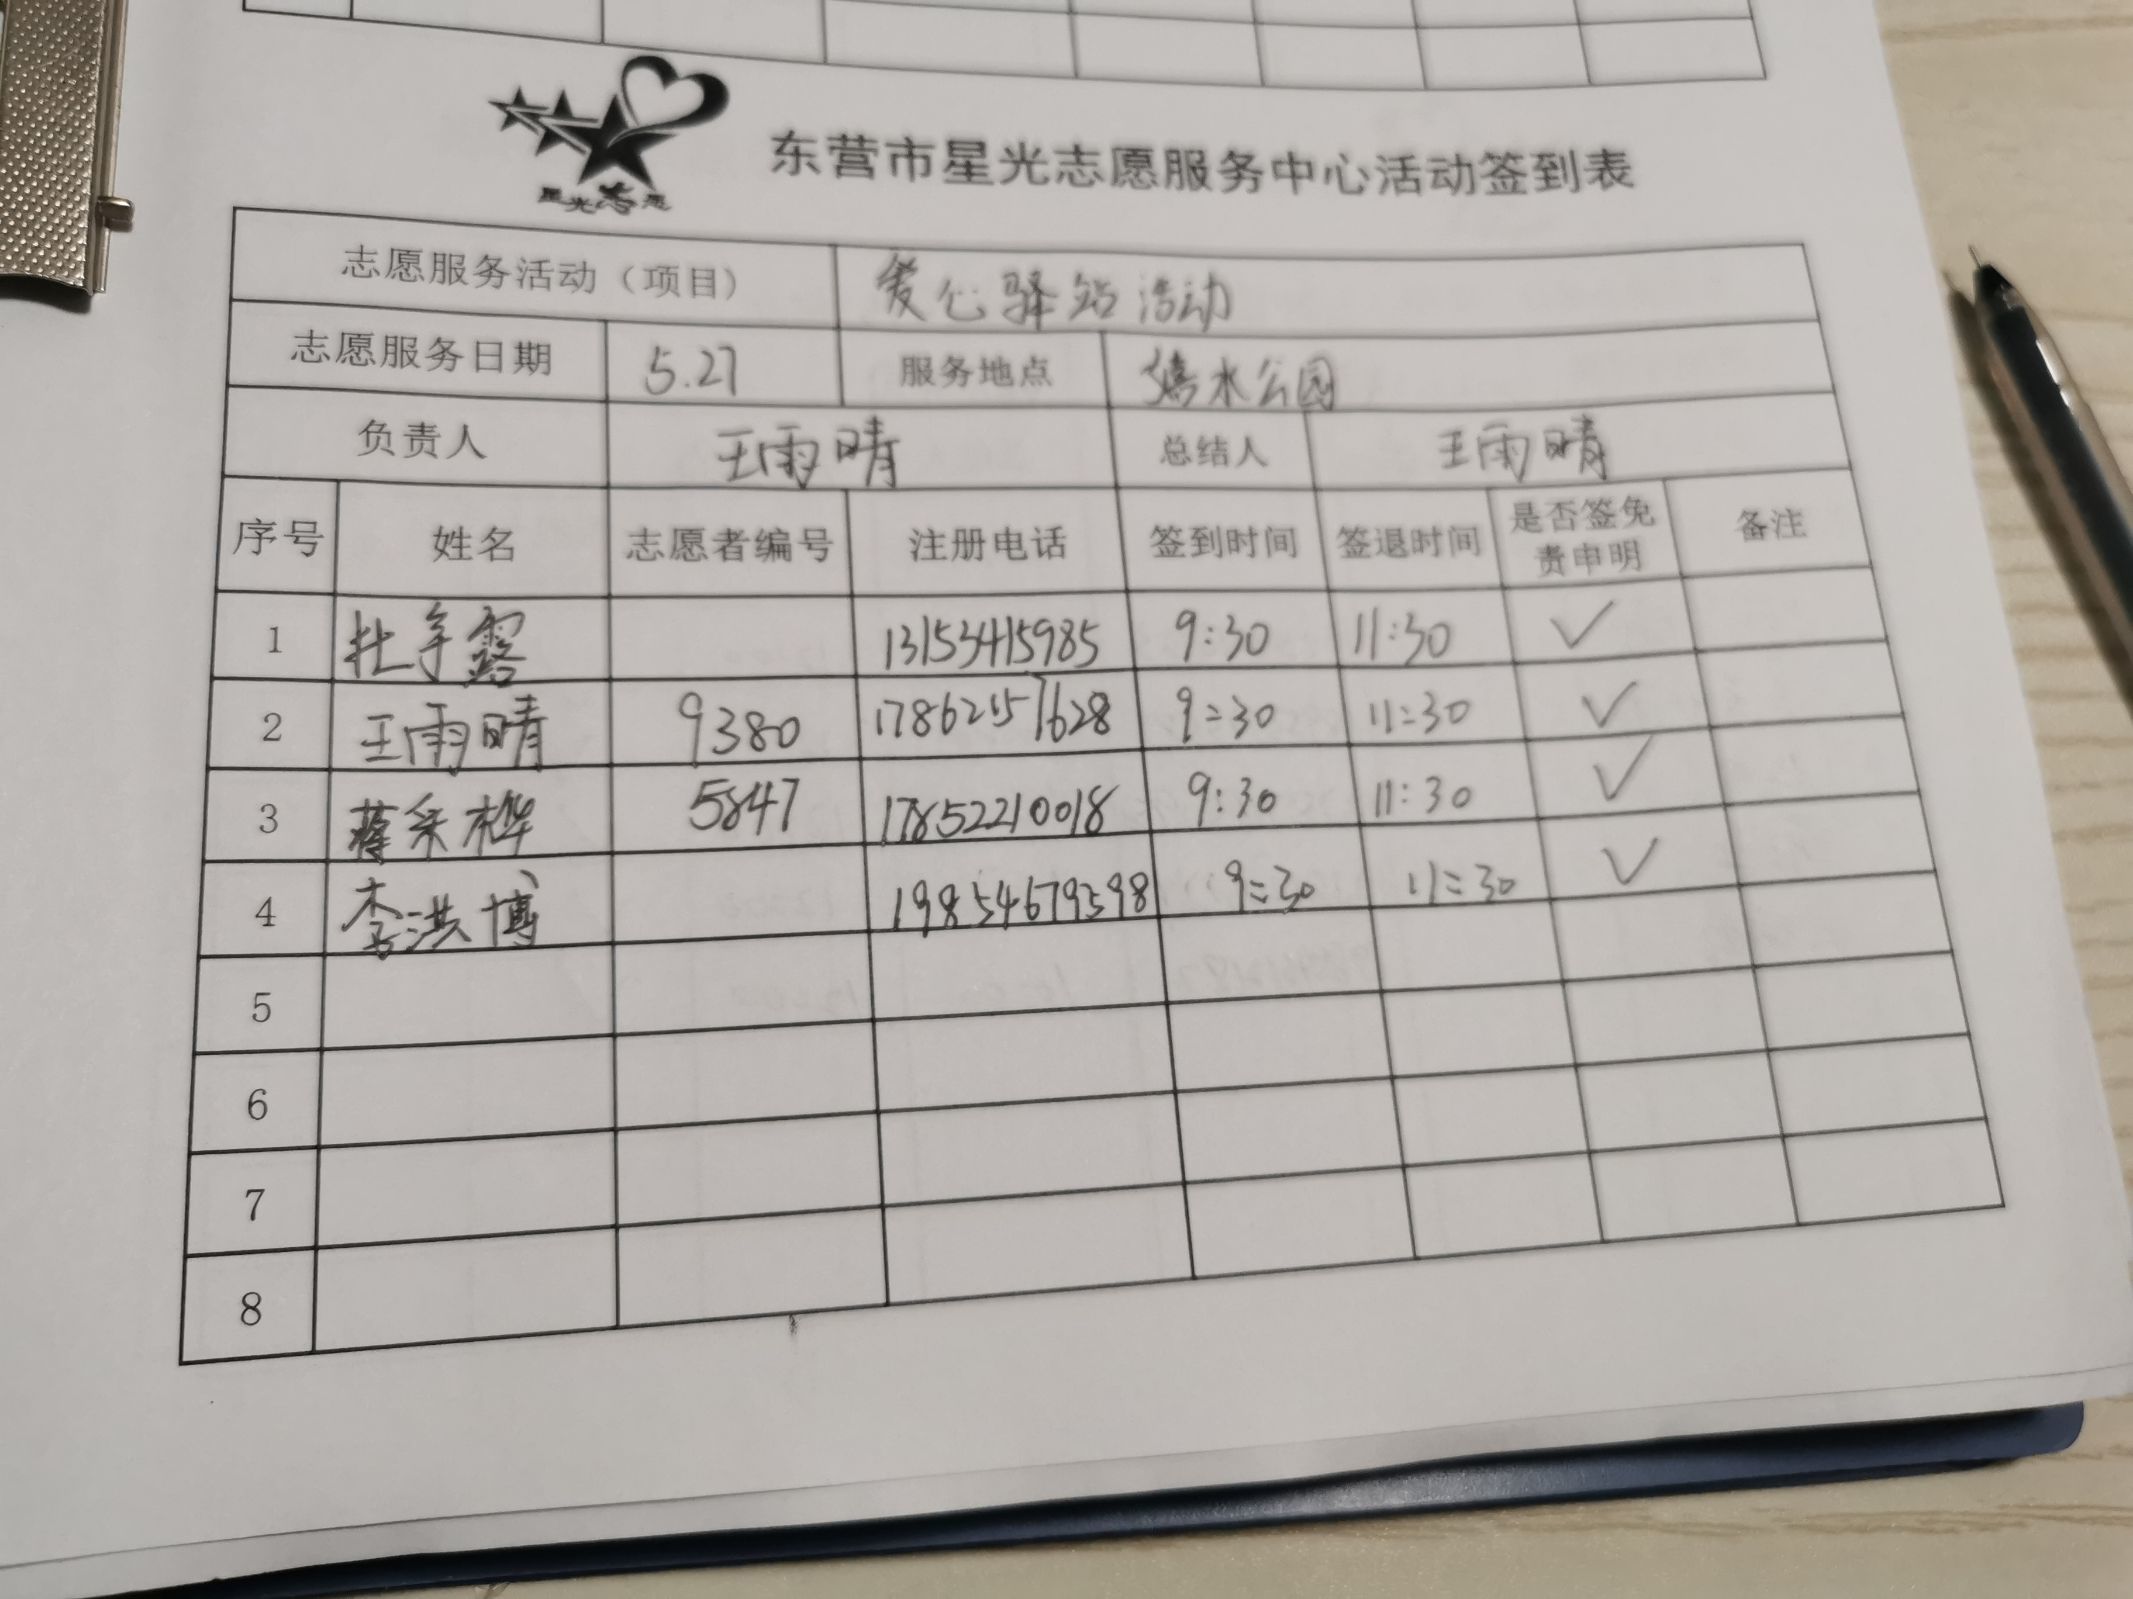 星光志愿
东营市星光志愿服务中心活动签到表
志愿服务活动（项目） 爱心驿站活动
志愿服务日期 5.27 服务地点 水公园
负责人 王雨晴 总结人 王雨晴
序号 姓名 志愿者编号 注册电话 签到时间 签退时间 是否签免责申明 备注
1 杜 露 13153415985 9:30 11:30 ✓
2 王雨晴 9380 17862157628 9:30 11:30 ✓
3 蒋采桦 5847 17852210018 9:30 11:30 ✓
4 李洪博 19854679398 9:30 11:30 ✓
5
6
7
8